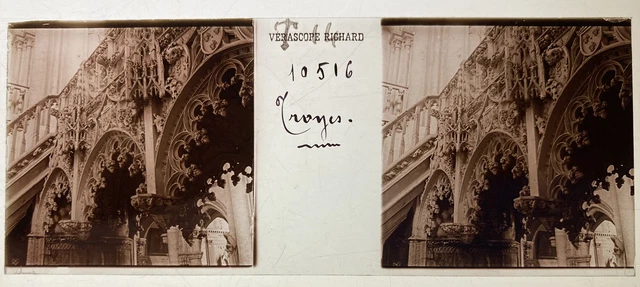 VÉRASCOPE RICHARD
10516
Troyes.